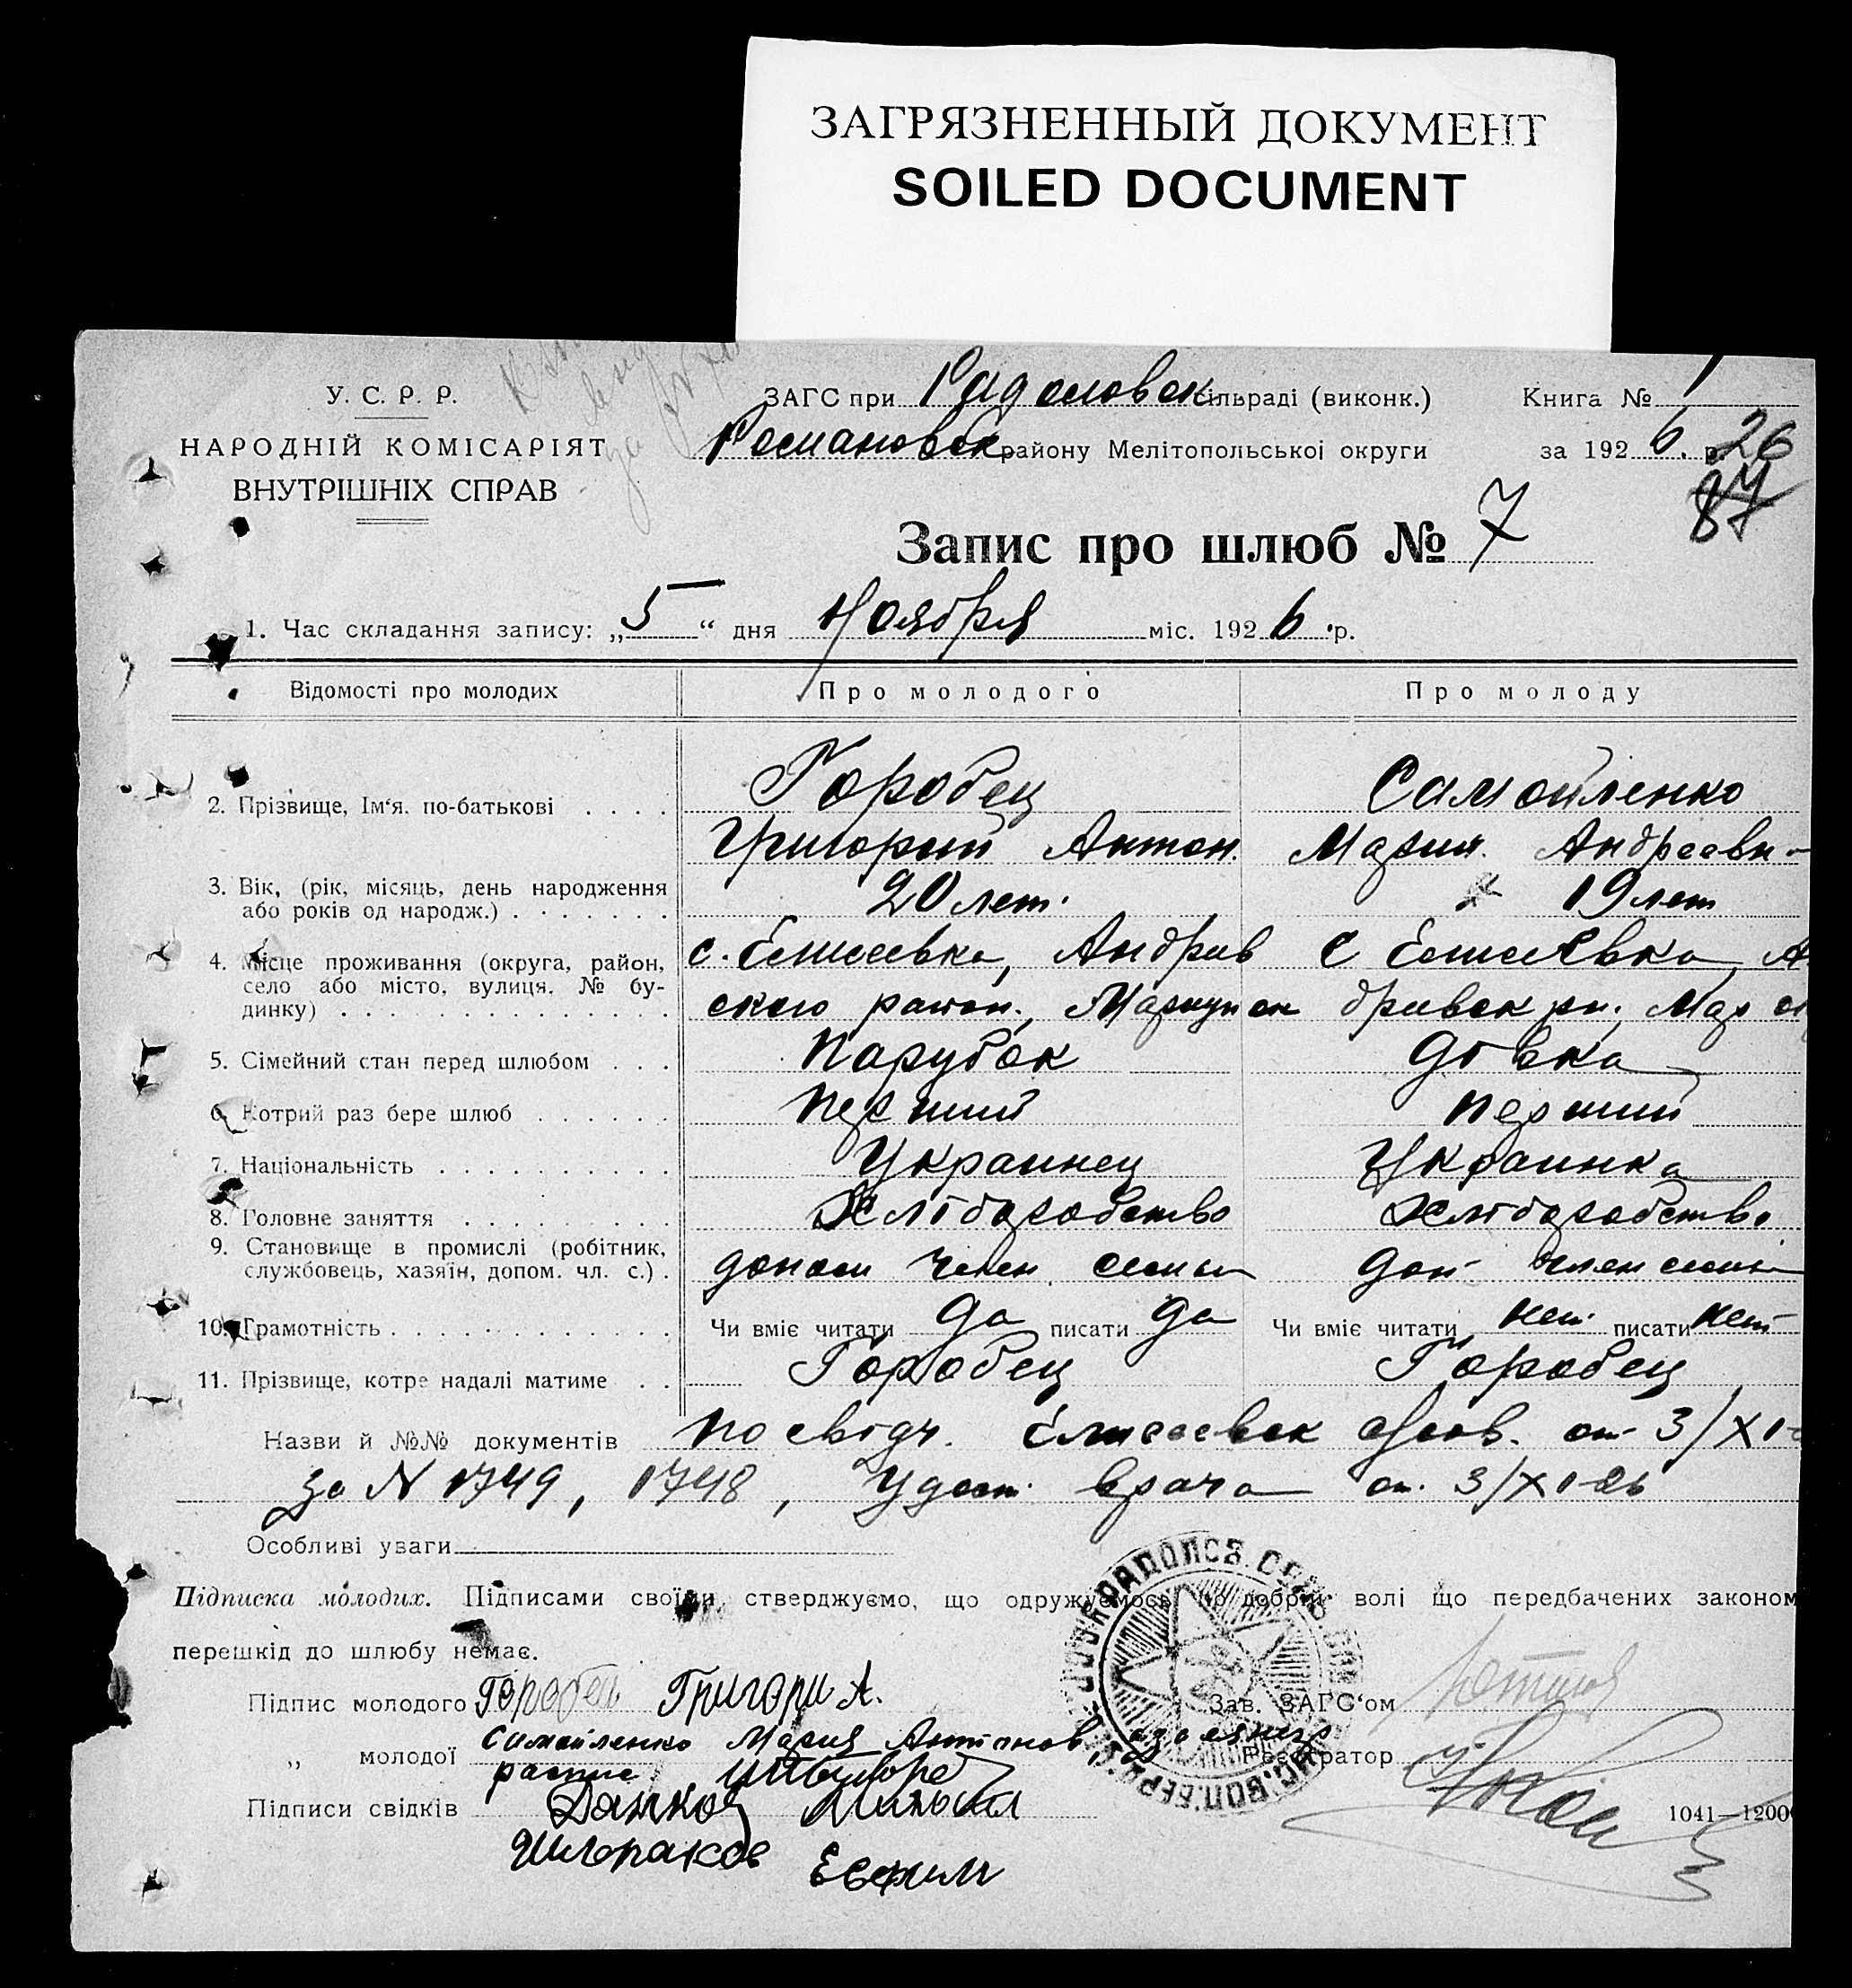 ЗАГРЯЗНЕННЫЙ ДОКУМЕНТ
SOILED DOCUMENT
У. С. Р. Р.
НАРОДНІЙ КОМІСАРІЯТ
ВНУТРІШНІХ СПРАВ
ЗАГС при Радоловск сільраді (виконк.)
Романовск району Мелітопольської округи
Книга № 1
за 1926. р.
26
87
Запис про шлюб № 7
1. Час складання запису: „5“ дня Ноября міс. 1926 р.
Відомості про молодих Про молодого Про молоду
2. Прізвище, Ім‘я. по-батькові . . . . Горобец Самойленко
Григорий Антон. Мария. Андреевн
3. Вік, (рік, місяць, день народження
або років од народж.) . . . . . . . 20 лет. 19 лет
4. Місце проживання (округа, район,
село або місто, вулиця, № бу-
динку) . . . . . . . . . . . . . .
с. Елисеевка, Андрив с Елисеевка, А
ского район., Мариуп ок дривск рн. Мар ок
5. Сімейний стан перед шлюбом . . . Парубок Дівка
6. Котрий раз бере шлюб . . . . . . Перший Перший
7. Національність . . . . . . . . . . Украинец Украинка
8. Головне заняття . . . . . . . . . Хліборобство Хліборобство
9. Становище в промислі (робітник,
службовець, хазяїн, допом. чл. с.) . допом член семьи доп член семьи
10. Грамотність . . . . . . . . . . . . Чи вміє читати да писати да Чи вміє читати нет писати нет
11. Прізвище, котре надалі матиме . . Горобец Горобец
Назви й №№ документів Посвідч. Елисеевск от 3/XI-
за N 1749, 1748, Удост. врача от. 3/XI-26
Особливі уваги
Підписка молодих. Підписами своїми стверджуємо, що одружуємося по добрій волі що передбачених законом
перешкід до шлюбу немає.
Підпис молодого Горобець Григори А.
Зав. ЗАГС‘ом
„ молодої Самойленко Мария Антонов,
Реєстратор
Підписи свідків
Ефим
1041—1200